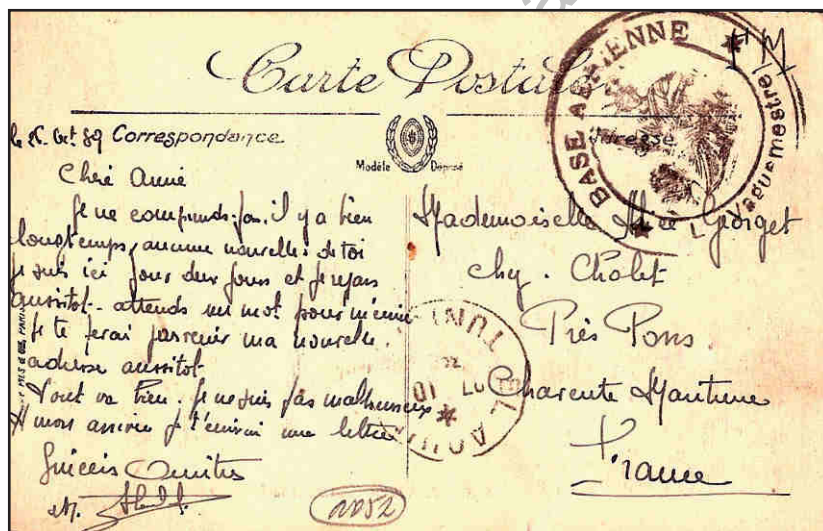 Carte Postale
BASE AERIENNE
Le Vaguemestre
F M
le 26. Oct 39 Correspondance
Adresse
Modèle Déposé
Chère Amie
Je ne comprends pas. il y a bien
longtemps, aucune nouvelle de toi
je suis ici pour deux jours et je repars
aussitot. attends un mot pour m'écrire
je te ferai parvenir ma nouvelle
adresse aussitot
Tout va bien. je ne suis pas malheureux
A mon arrivée je t'écrirai une lettre
Sincères Amitiés
Mademoiselle Giorget
chez. Cholet
Près Pons
Charente Maritime
France
TUNI
LAOUI
PARIS
2052